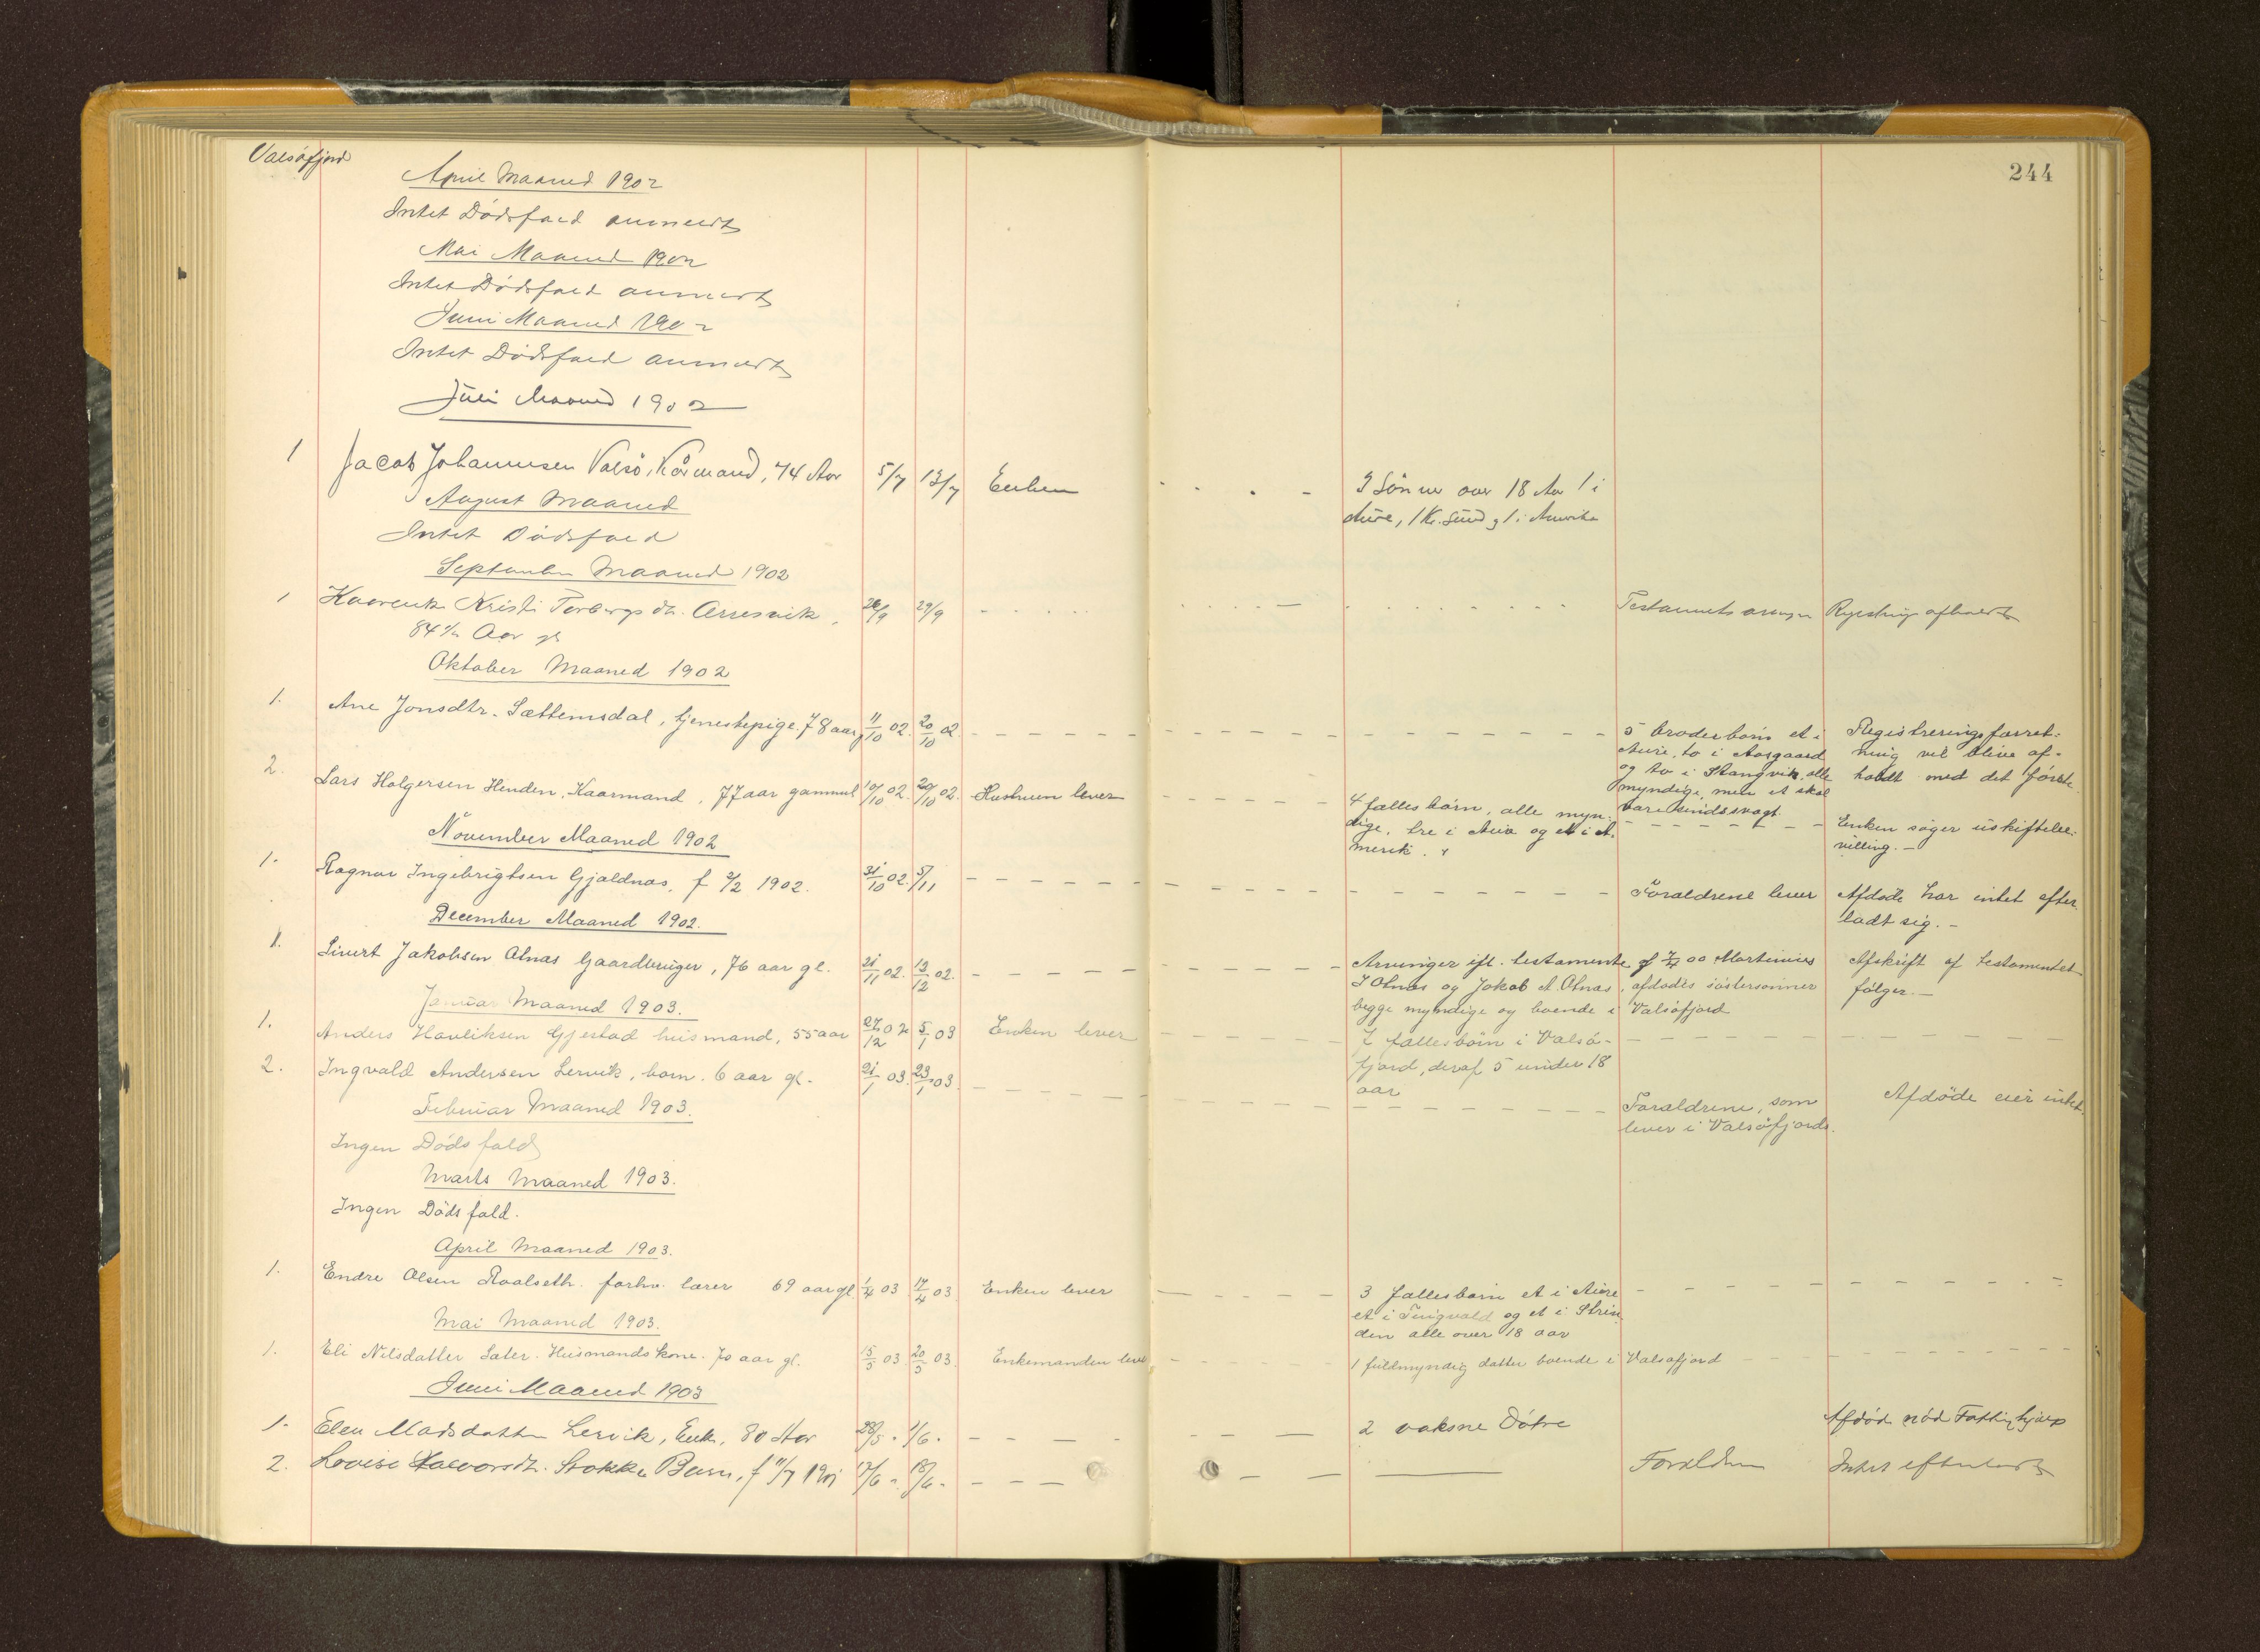 Valsøfjord
244
April Maaned 1902
Intet Dødsfald anmeldt
Mai Maaned 1902
Intet Dødsfald anmeldt
Juni Maaned 1902
Intet Dødsfald anmeldt
Juli Maaned 1902
1 Jacob Johannesen Valsø, Kårmand, 74 Aar 5/7 13/7 Enken 3 Sönner over 18 Aar 1 i
Aure, 1 Kr.sund og 1 i Amerika
August Maaned
Intet Dödsfald
September Maaned 1902
1 Kaarenk. Kristi Torbergsdtr. Arresvik, 26/9 29/9 Testaments arving
84 1/2 Aar gl
Oktober Maaned 1902
1. Ane Jonsdtr. Sættemsdal, tjenestepige, 78 aar, 11/10 02. 20/10 02. 5 broderbörn et i Registreringsforret-
Aure, to i Aasgaard ning vil blive af-
og to i Stangvik, alle holdt med det förste.
myndige, men et skal
være sindssvagt.
2. Lars Holgersen Henden, Kaarmand, 77 aar gammel 10/10 02. 20/10 02. Hustruen lever 4 fælles börn, alle myn- Enken söger uskiftebe-
dige, tre i Aure og et i A- villing. —
merik.
November Maaned 1902
1. Ragnar Ingebrigtsen Gjældnæs, f 2/2 1902. 31/10 02. 5/11 Forældrene lever Afdøde har intet efter
ladt sig. —
December Maaned 1902.
1. Sivert Jakobsen Alnæs Gaardbruger, 76 aar gl. 21/11 02. 13/12 02. Arvinger ifl. testamente af 7/4 00 Martinius Afskrift af testamentet
J Alnæs og Jakob A. Alnæs, afdødes söstersönner fölger. —
begge myndige og boende i Valsøfjord
Januar Maaned 1903.
1. Anders Havliksen Gjestad husmand, 55 aar 27/12 02 5/1 03 Enken lever 7 fællesbörn i Valsö-
fjord, deraf 5 under 18
aar
2. Ingvald Andersen Lervik, barn. 6 aar gl. 21/1 03. 23/1 03. Forældrene, som Afdöde eier intet.
lever i Valsøfjord.
Februar Maaned 1903.
Ingen Döds fald
Marts Maaned 1903.
Ingen Döds fald.
April Maaned 1903.
1. Endre Olsen Roalseth. forhv. lærer 69 aar gl 1/4 03 17/4 03 Enken lever 3 fællesbörn et i Aure
et i Tingvold og et i Strin
den alle over 18 aar
Mai Maaned 1903.
1. Eli Nilsdatter Sæter. Husmandskone. 70 aar gl. 15/5 03. 20/5 03. Enkemanden leve 1 fuldmyndig datter boende i Valsøfjord
Juni Maaned 1903
1. Elen Madsdatter Lervik, Enke, 80 Aar 28/5. 1/6. 2 voksne Døtre Afdød nöd Fattighjælp
2. Lovise Halvorsdtr. Stokke Barn, f 11/7 1901 17/6. 18/6. Forældrene Intet efterladt